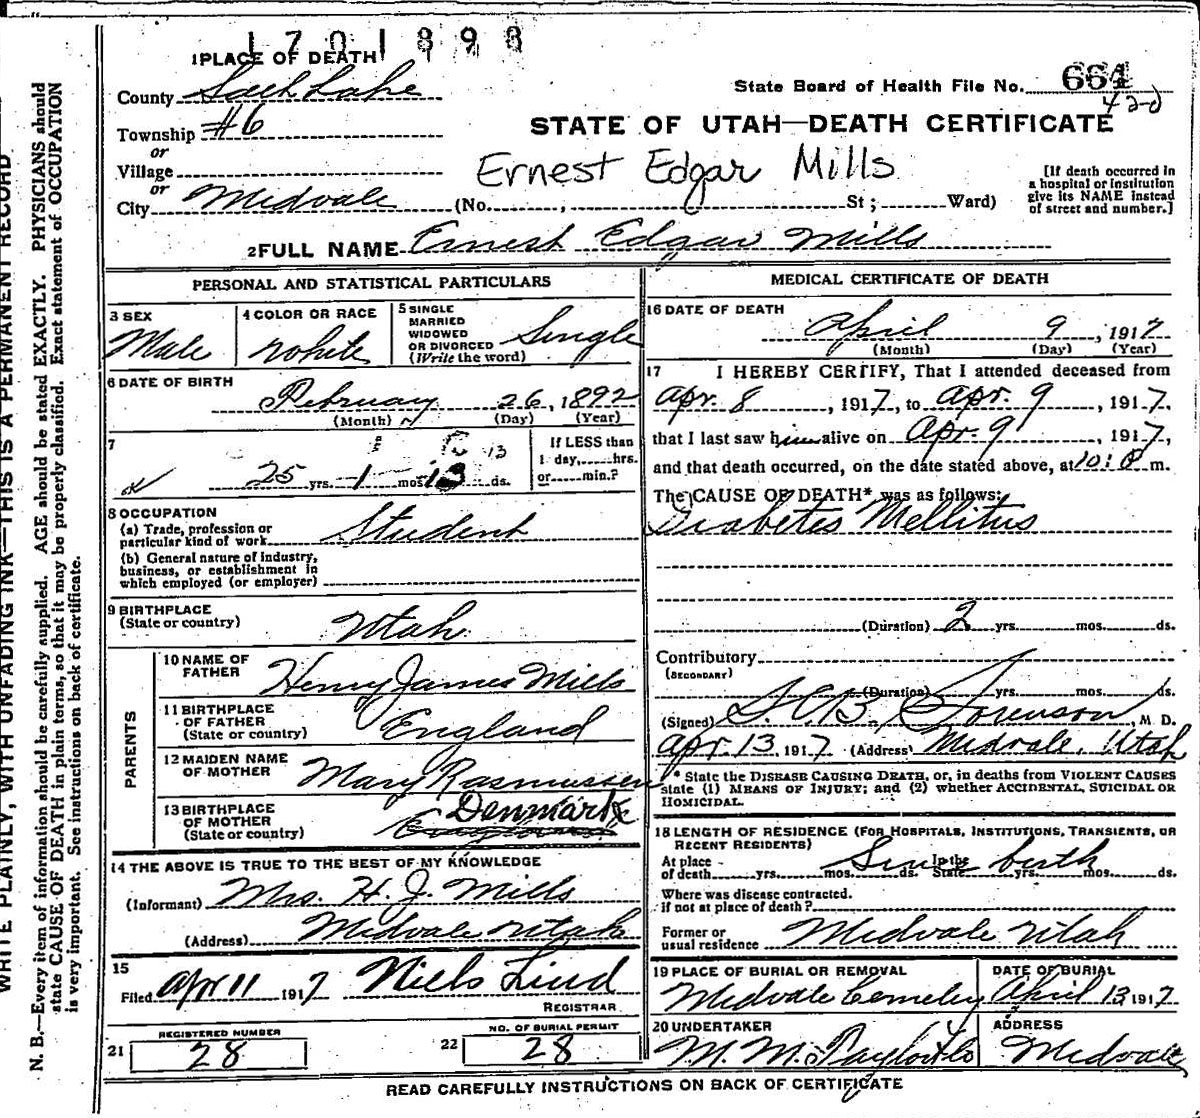 1701898
1 PLACE OF DEATH
County Salt Lake
State Board of Health File No. 664
420
Township #6
or
STATE OF UTAH—DEATH CERTIFICATE
Village
or
Ernest Edgar Mills
City Medvale (No. , St ; Ward)
[If death occurred in
a hospital or institution
give its NAME instead
of street and number.]
2 FULL NAME Ernest Edgar Mills
PERSONAL AND STATISTICAL PARTICULARS
3 SEX
Male
4 COLOR OR RACE
White
5 SINGLE
MARRIED
WIDOWED
OR DIVORCED
(Write the word)
Single
6 DATE OF BIRTH
February 26, 1892
(Month) (Day) (Year)
7
13
25 yrs. 1 mos. 13 ds.
If LESS than
1 day, hrs.
or min.?
8 OCCUPATION
(a) Trade, profession or
particular kind of work Student
(b) General nature of industry,
business, or establishment in
which employed (or employer)
9 BIRTHPLACE
(State or country) Utah
PARENTS
10 NAME OF
FATHER Henry James Mills
11 BIRTHPLACE
OF FATHER
(State or country) England
12 MAIDEN NAME
OF MOTHER Mary Rasmussen
13 BIRTHPLACE
OF MOTHER
(State or country) Denmark
England
14 THE ABOVE IS TRUE TO THE BEST OF MY KNOWLEDGE
(Informant) Mrs. H. J. Mills
(Address) Medvale Utah
15
Filed Apr 11 1917 Niels Lind
REGISTRAR
REGISTERED NUMBER
21 28
NO. OF BURIAL PERMIT
22 28
MEDICAL CERTIFICATE OF DEATH
16 DATE OF DEATH
April 9, 1917
(Month) (Day) (Year)
17 I HEREBY CERTIFY, That I attended deceased from
Apr. 8, 1917, to Apr. 9, 1917,
that I last saw him alive on Apr. 9, 1917,
and that death occurred, on the date stated above, at m.
The CAUSE OF DEATH* was as follows:
Diabetes Mellitus
(Duration) 2 yrs. mos. ds.
Contributory
(SECONDARY)
(Duration) yrs. mos. ds.
(Signed) Sorenson, M D.
Apr. 13, 1917 (Address) Medvale, Utah
* State the DISEASE CAUSING DEATH, or, in deaths from VIOLENT CAUSES
state (1) MEANS OF INJURY; and (2) whether ACCIDENTAL, SUICIDAL OR
HOMICIDAL.
18 LENGTH OF RESIDENCE (FOR HOSPITALS, INSTITUTIONS, TRANSIENTS, OR
RECENT RESIDENTS)
At place
of death yrs. mos. ds. In the State yrs. mos. ds.
Since birth
Where was disease contracted.
if not at place of death?
Former or
usual residence Medvale Utah
19 PLACE OF BURIAL OR REMOVAL
Medvale Cemetery
DATE OF BURIAL
April 13 1917
20 UNDERTAKER
M. M. Taylor & Co
ADDRESS
Medvale
READ CAREFULLY INSTRUCTIONS ON BACK OF CERTIFICATE
WRITE PLAINLY, WITH UNFADING INK—THIS IS A PERMANENT RECORD
N. B.—Every item of information should be carefully supplied. AGE should be stated EXACTLY. PHYSICIANS should
state CAUSE OF DEATH in plain terms, so that it may be properly classified. Exact statement of OCCUPATION
is very important. See instructions on back of certificate.